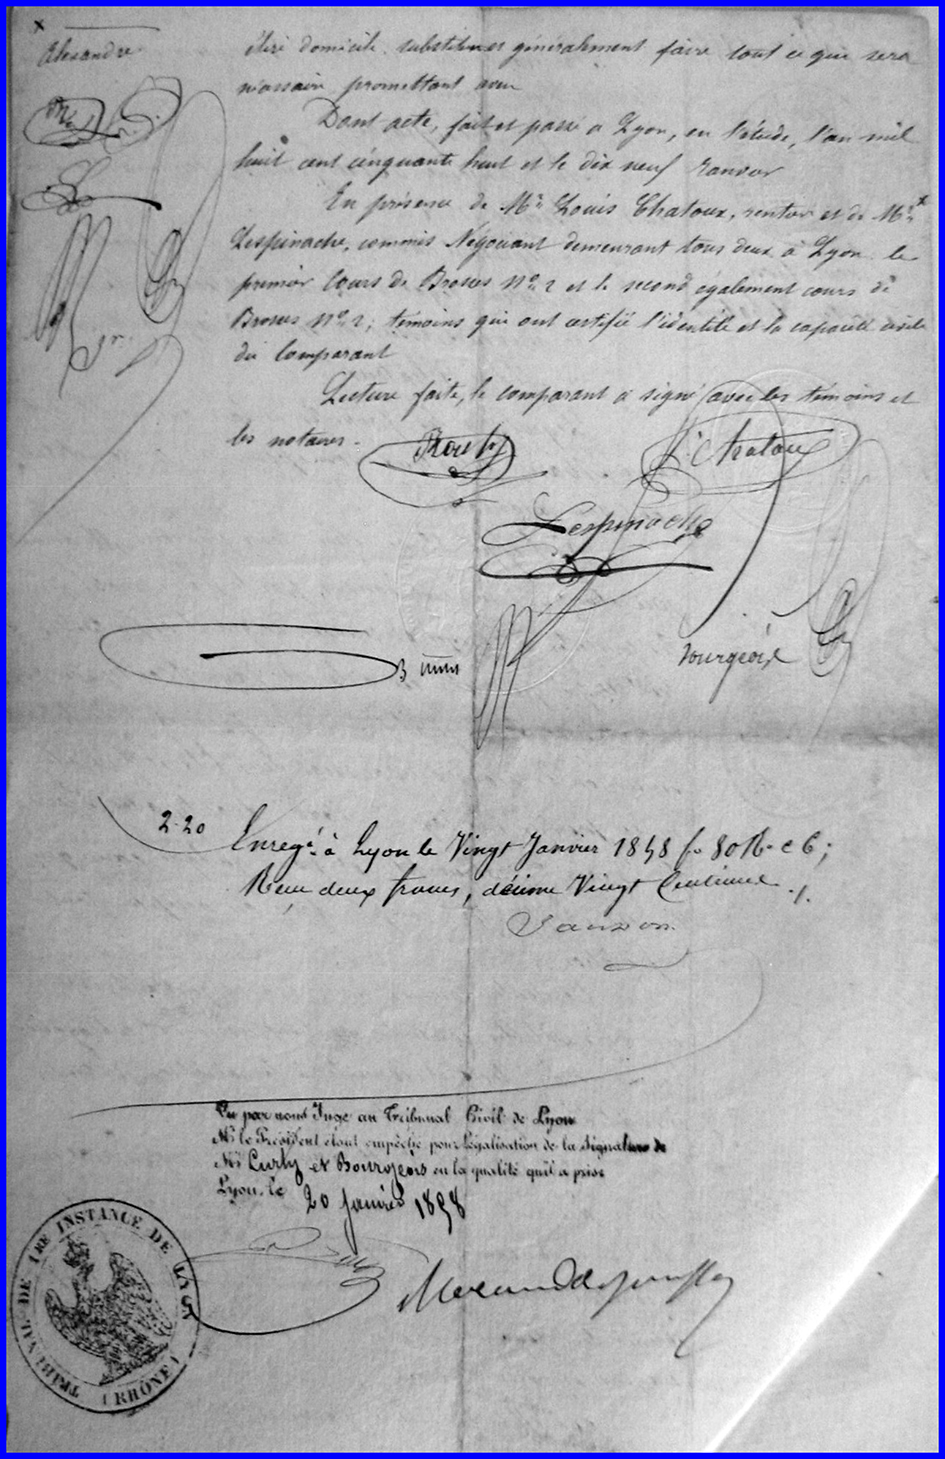 x
Alexandre
élire domicile. substituer généralement faire tout ce que sera
nécessaire promettant aveu
Dont acte, fait et passé a Lyon, en l'étude, l'an mil
huit cent cinquante huit et le dix neuf Janvier
En présence de Mrs Louis Chatoux, rentier et de Mr x
Lespinache, commis Négociant demeurant tous deux à Lyon le
premier Cours de Brosses No 2 et le second également cours de
Brosses No 2; témoins qui ont certifié l'identité et la capacité civile
du Comparant
Lecture faite, le comparant a signé avec les témoins et
les notaires.
L. Chatoux
Lespinache
Bourgeois
2-20
Enregé. à Lyon le Vingt Janvier 1858 fo 80 Ro c 6;
Reçu deux francs, décime Vingt Centimes ./.
Vu par nous Juge au Tribunal Civil de Lyon
Mr le Président étant empêché pour légalisation de la signature de
Mrs Curty et Bourgeois en la qualité qu'il a prise
Lyon, le 20 janvier 1858
TRIBUNAL DE 1RE INSTANCE DE LYON
(RHÔNE)